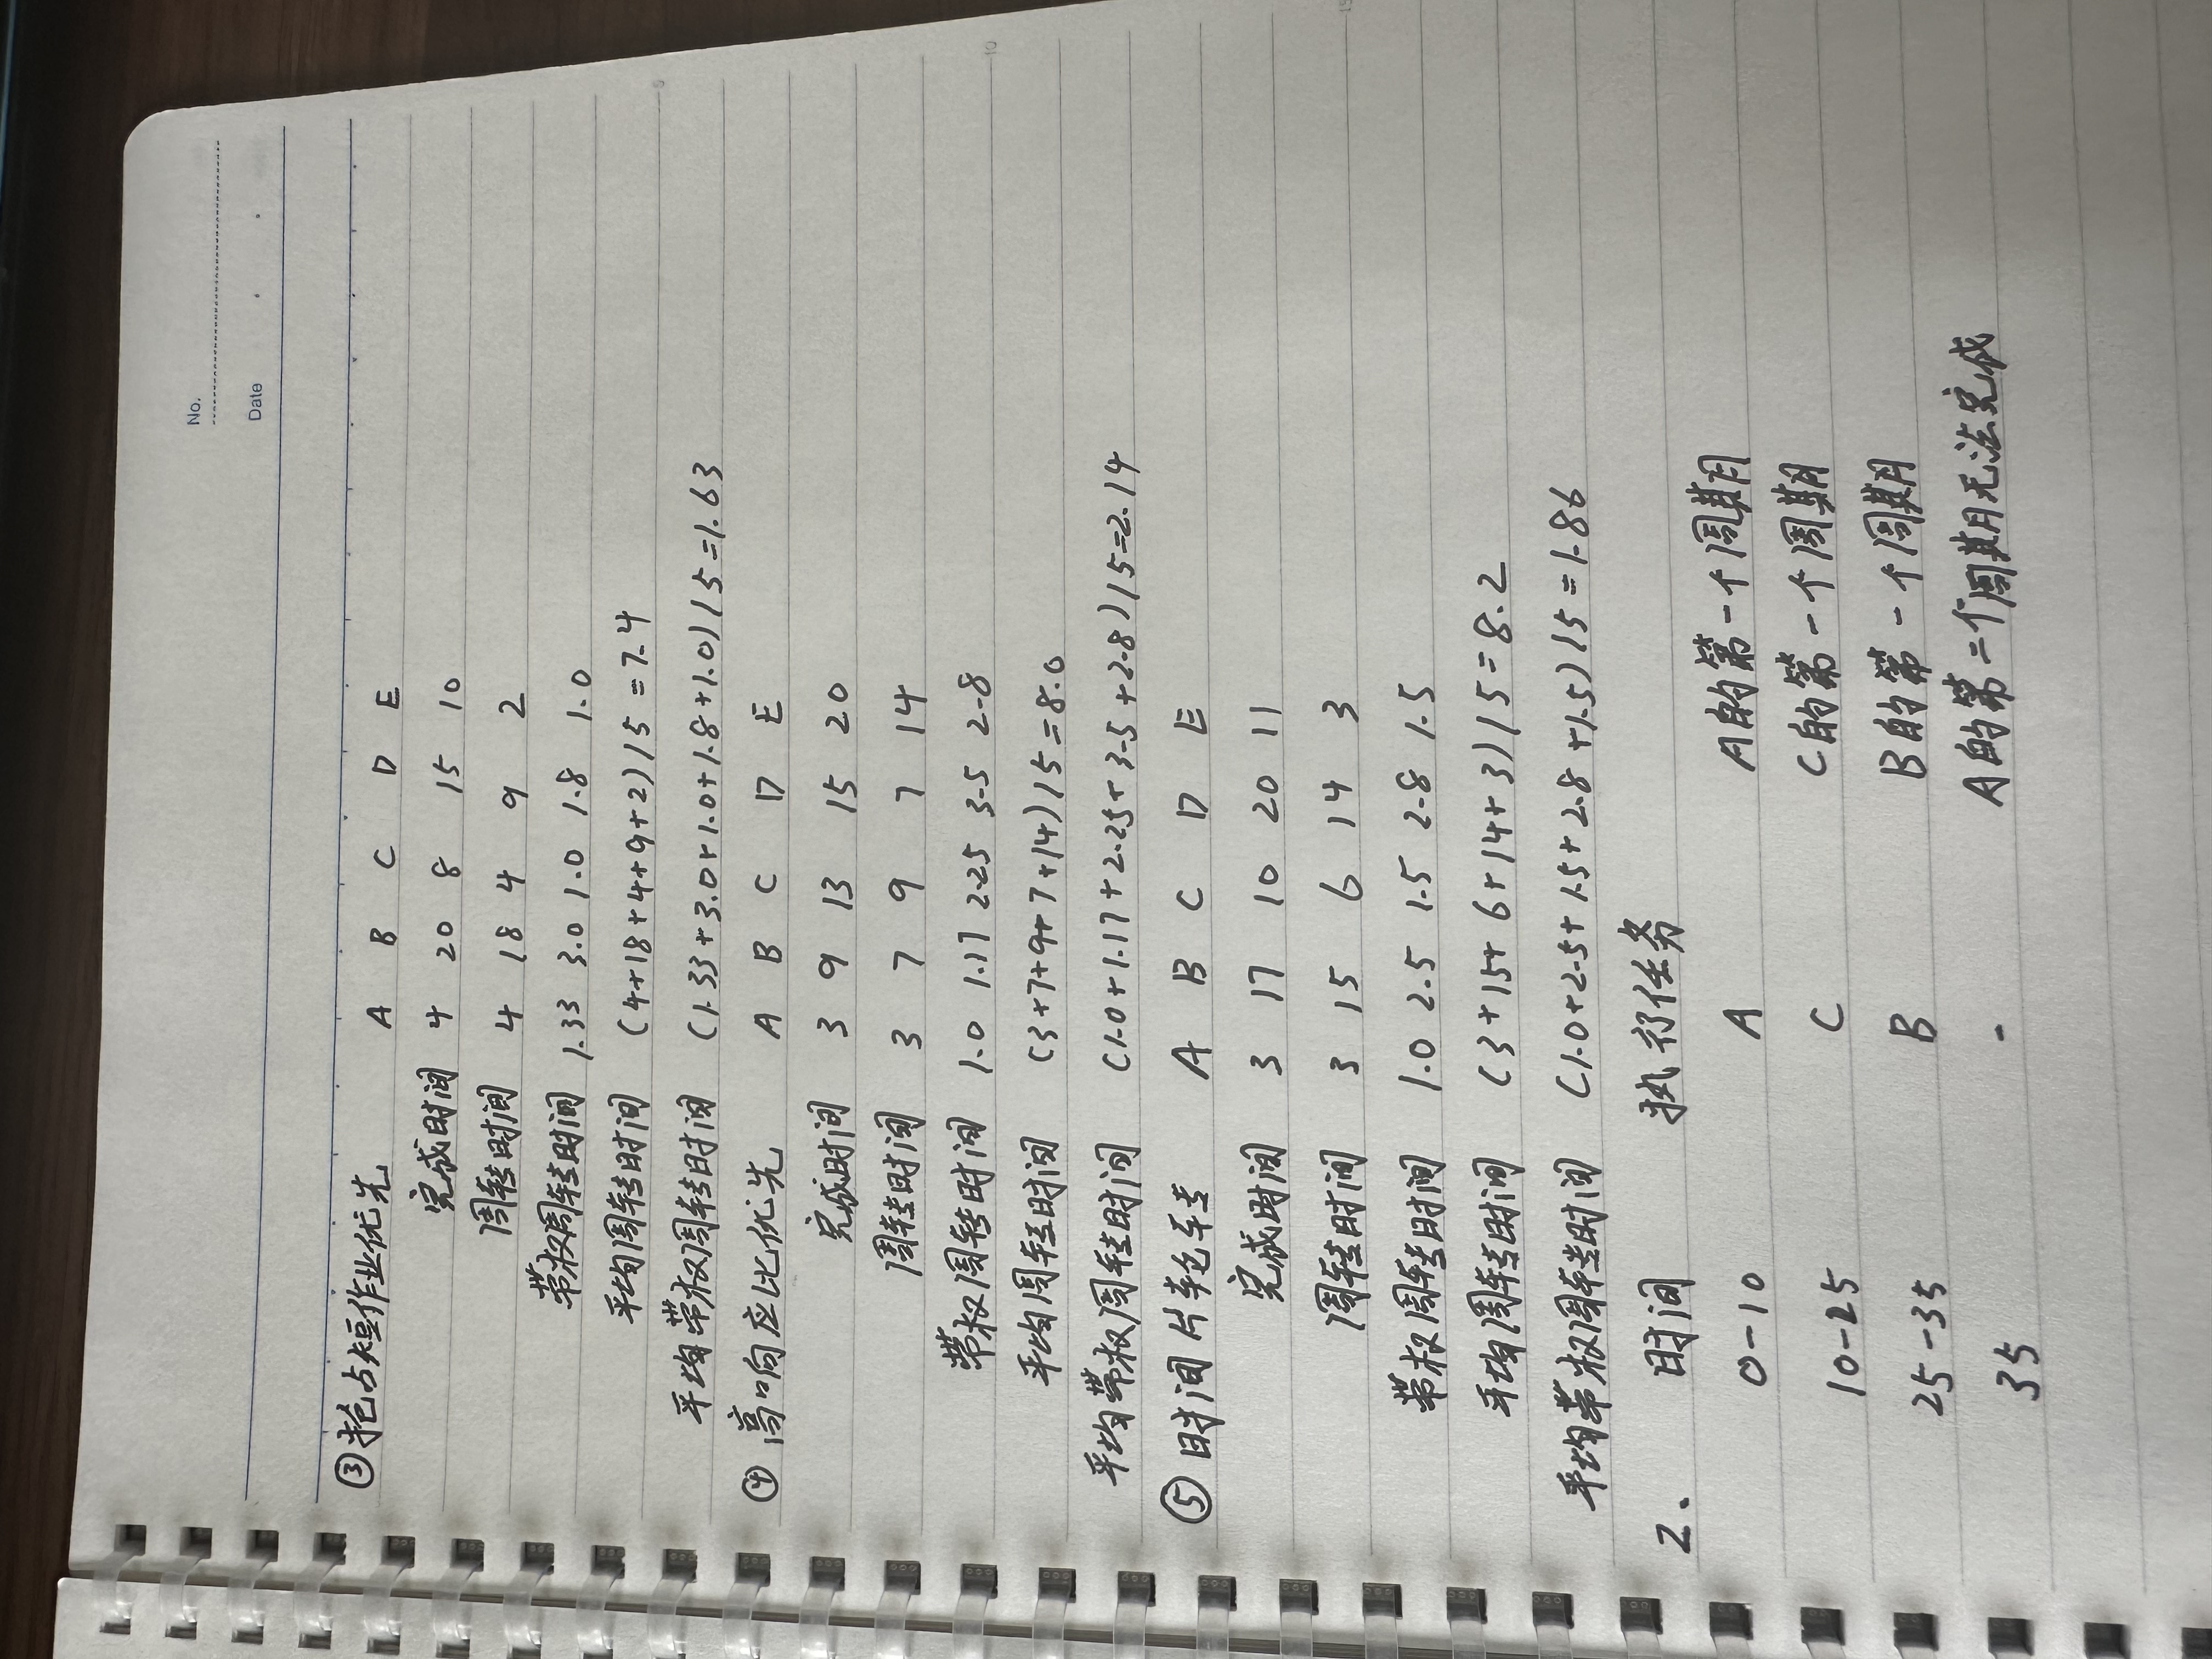 No.
Date
③抢占短作业优先 A B C D E
完成时间 4 20 8 15 10
周转时间 4 18 4 9 2
带权周转时间 1.33 3.0 1.0 1.8 1.0
平均周转时间 (4+18+4+9+2)/5=7.4
5
平均带权周转时间 (1.33+3.0+1.0+1.8+1.0)/5=1.63
④高响应比优先 A B C D E
完成时间 3 9 13 15 20
周转时间 3 7 9 7 14
带权周转时间 1.0 1.17 2.25 3.5 2.8
10
平均周转时间 (3+7+9+7+14)/5=8.0
平均带权周转时间 (1.0+1.17+2.25+3.5+2.8)/5=2.14
⑤时间片轮转 A B C D E
完成时间 3 17 10 20 11
周转时间 3 15 6 14 3
15
带权周转时间 1.0 2.5 1.5 2.8 1.5
平均周转时间 (3+15+6+14+3)/5=8.2
平均带权周转时间 (1.0+2.5+1.5+2.8+1.5)/5=1.86
2. 时间 执行任务
0-10 A A的第一个周期
10-25 C C的第一个周期
25-35 B B的第一个周期
35 - A的第二个周期无法完成